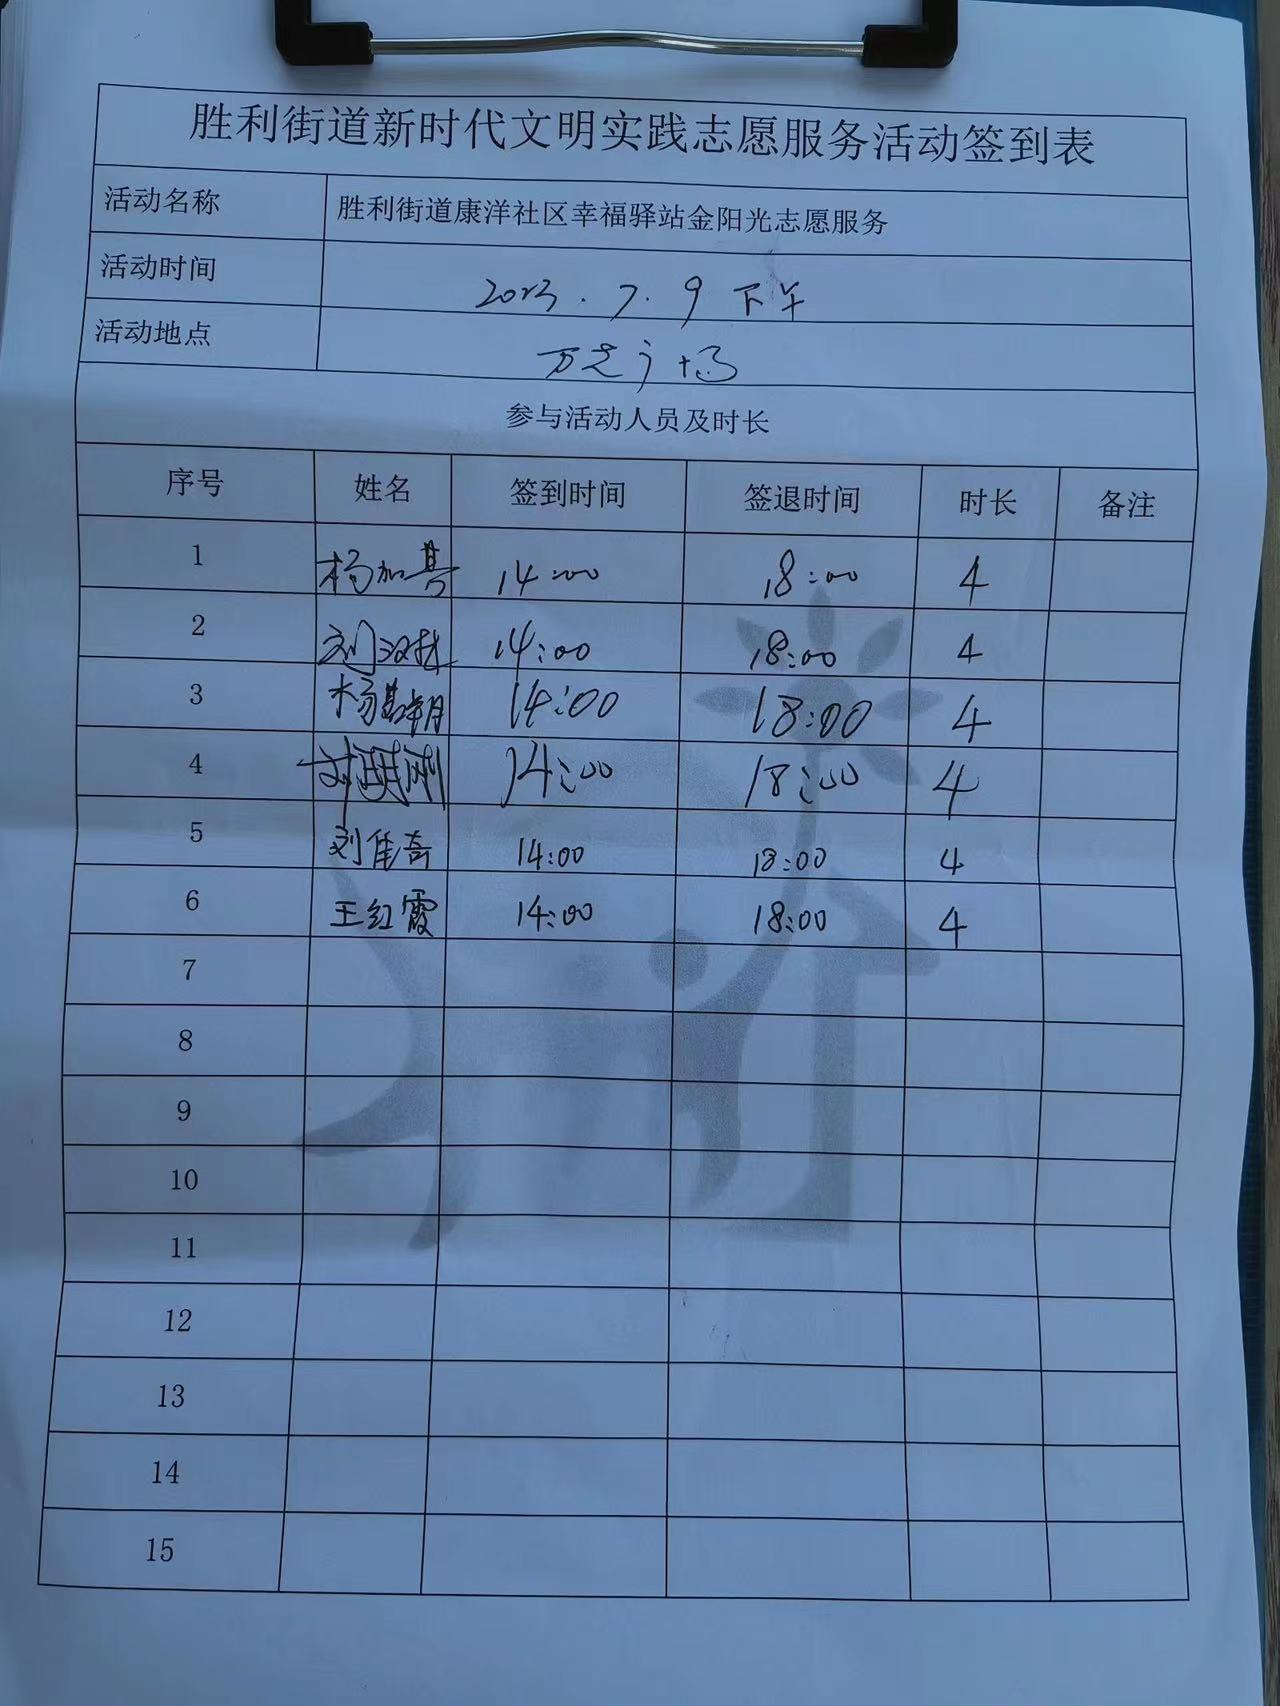 胜利街道新时代文明实践志愿服务活动签到表
活动名称 胜利街道康洋社区幸福驿站金阳光志愿服务
活动时间 2023.7.9 下午
活动地点 万达广场
参与活动人员及时长
序号 姓名 签到时间 签退时间 时长 备注
1 杨加 14:00 18:00 4
2 刘汉林 14:00 18:00 4
3 杨 14:00 18:00 4
4 刘刚 14:00 18:00 4
5 刘佳奇 14:00 18:00 4
6 王红霞 14:00 18:00 4
7
8
9
10
11
12
13
14
15